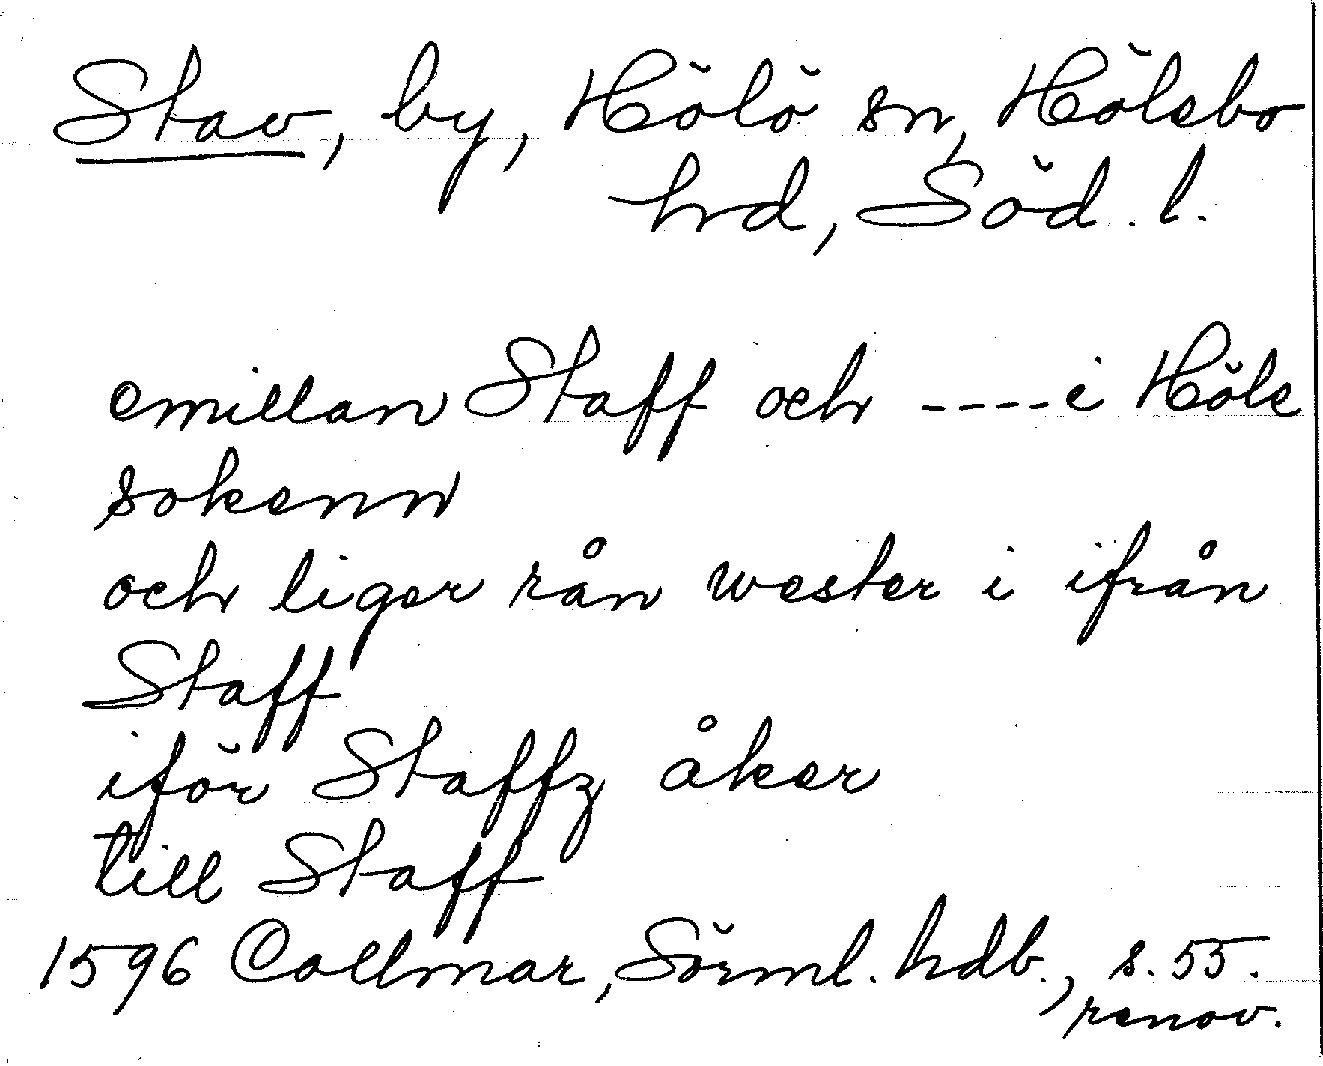 Stav, by, Hölö sn, Hölebo
hrd, Söd. l.
emillan Staff och ---- i Höle
sokenn
och liger rån wester i ifrån
Staff
iför Staffz åker
till Staff
1596 Collmar, Sörml. hdb., s. 55.
renov.